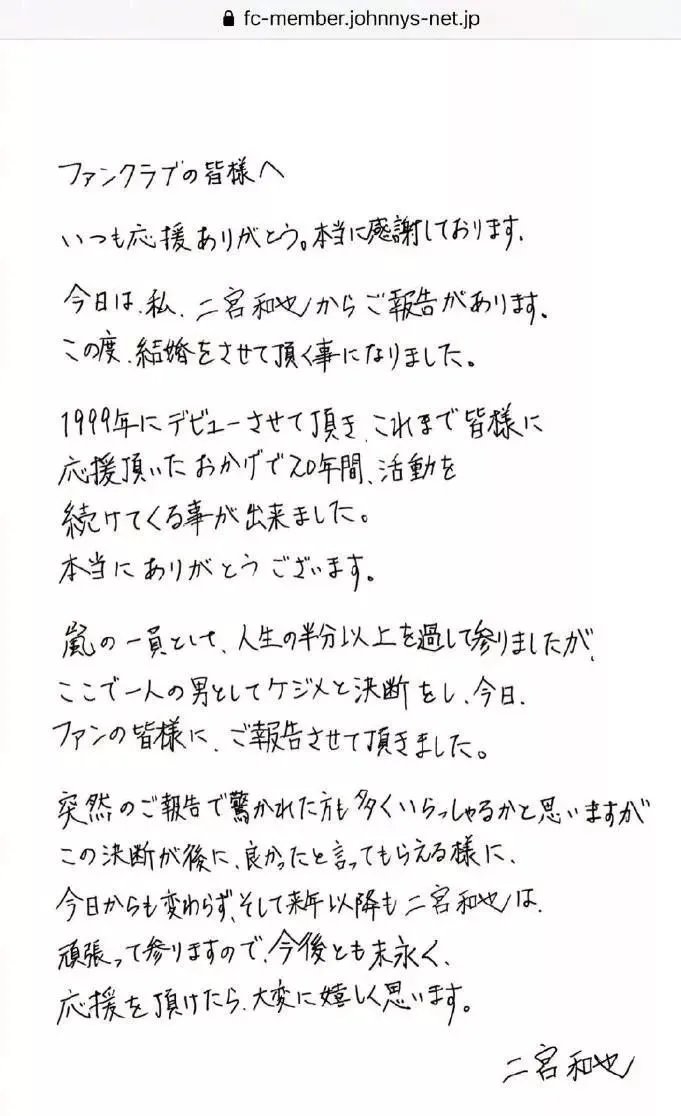 fc-member.johnnys-net.jp
ファンクラブの皆様へ
いつも応援ありがとう。本当に感謝しております。
今日は、私、二宮和也からご報告があります。
この度、結婚をさせて頂く事になりました。
1999年にデビューさせて頂き、これまで皆様に
応援頂いたおかげで20年間、活動を
続けてくる事が出来ました。
本当にありがとうございます。
嵐の一員として、人生の半分以上を過して参りましたが、
ここで一人の男としてケジメと決断をし、今日、
ファンの皆様に、ご報告させて頂きました。
突然のご報告で驚かれた方も多くいらっしゃるかと思いますが
この決断が後に、良かったと言ってもらえる様に、
今日からも変わらず、そして来年以降も二宮和也は、
頑張って参りますので、今後とも末永く、
応援を頂けたら、大変に嬉しく思います。
二宮和也